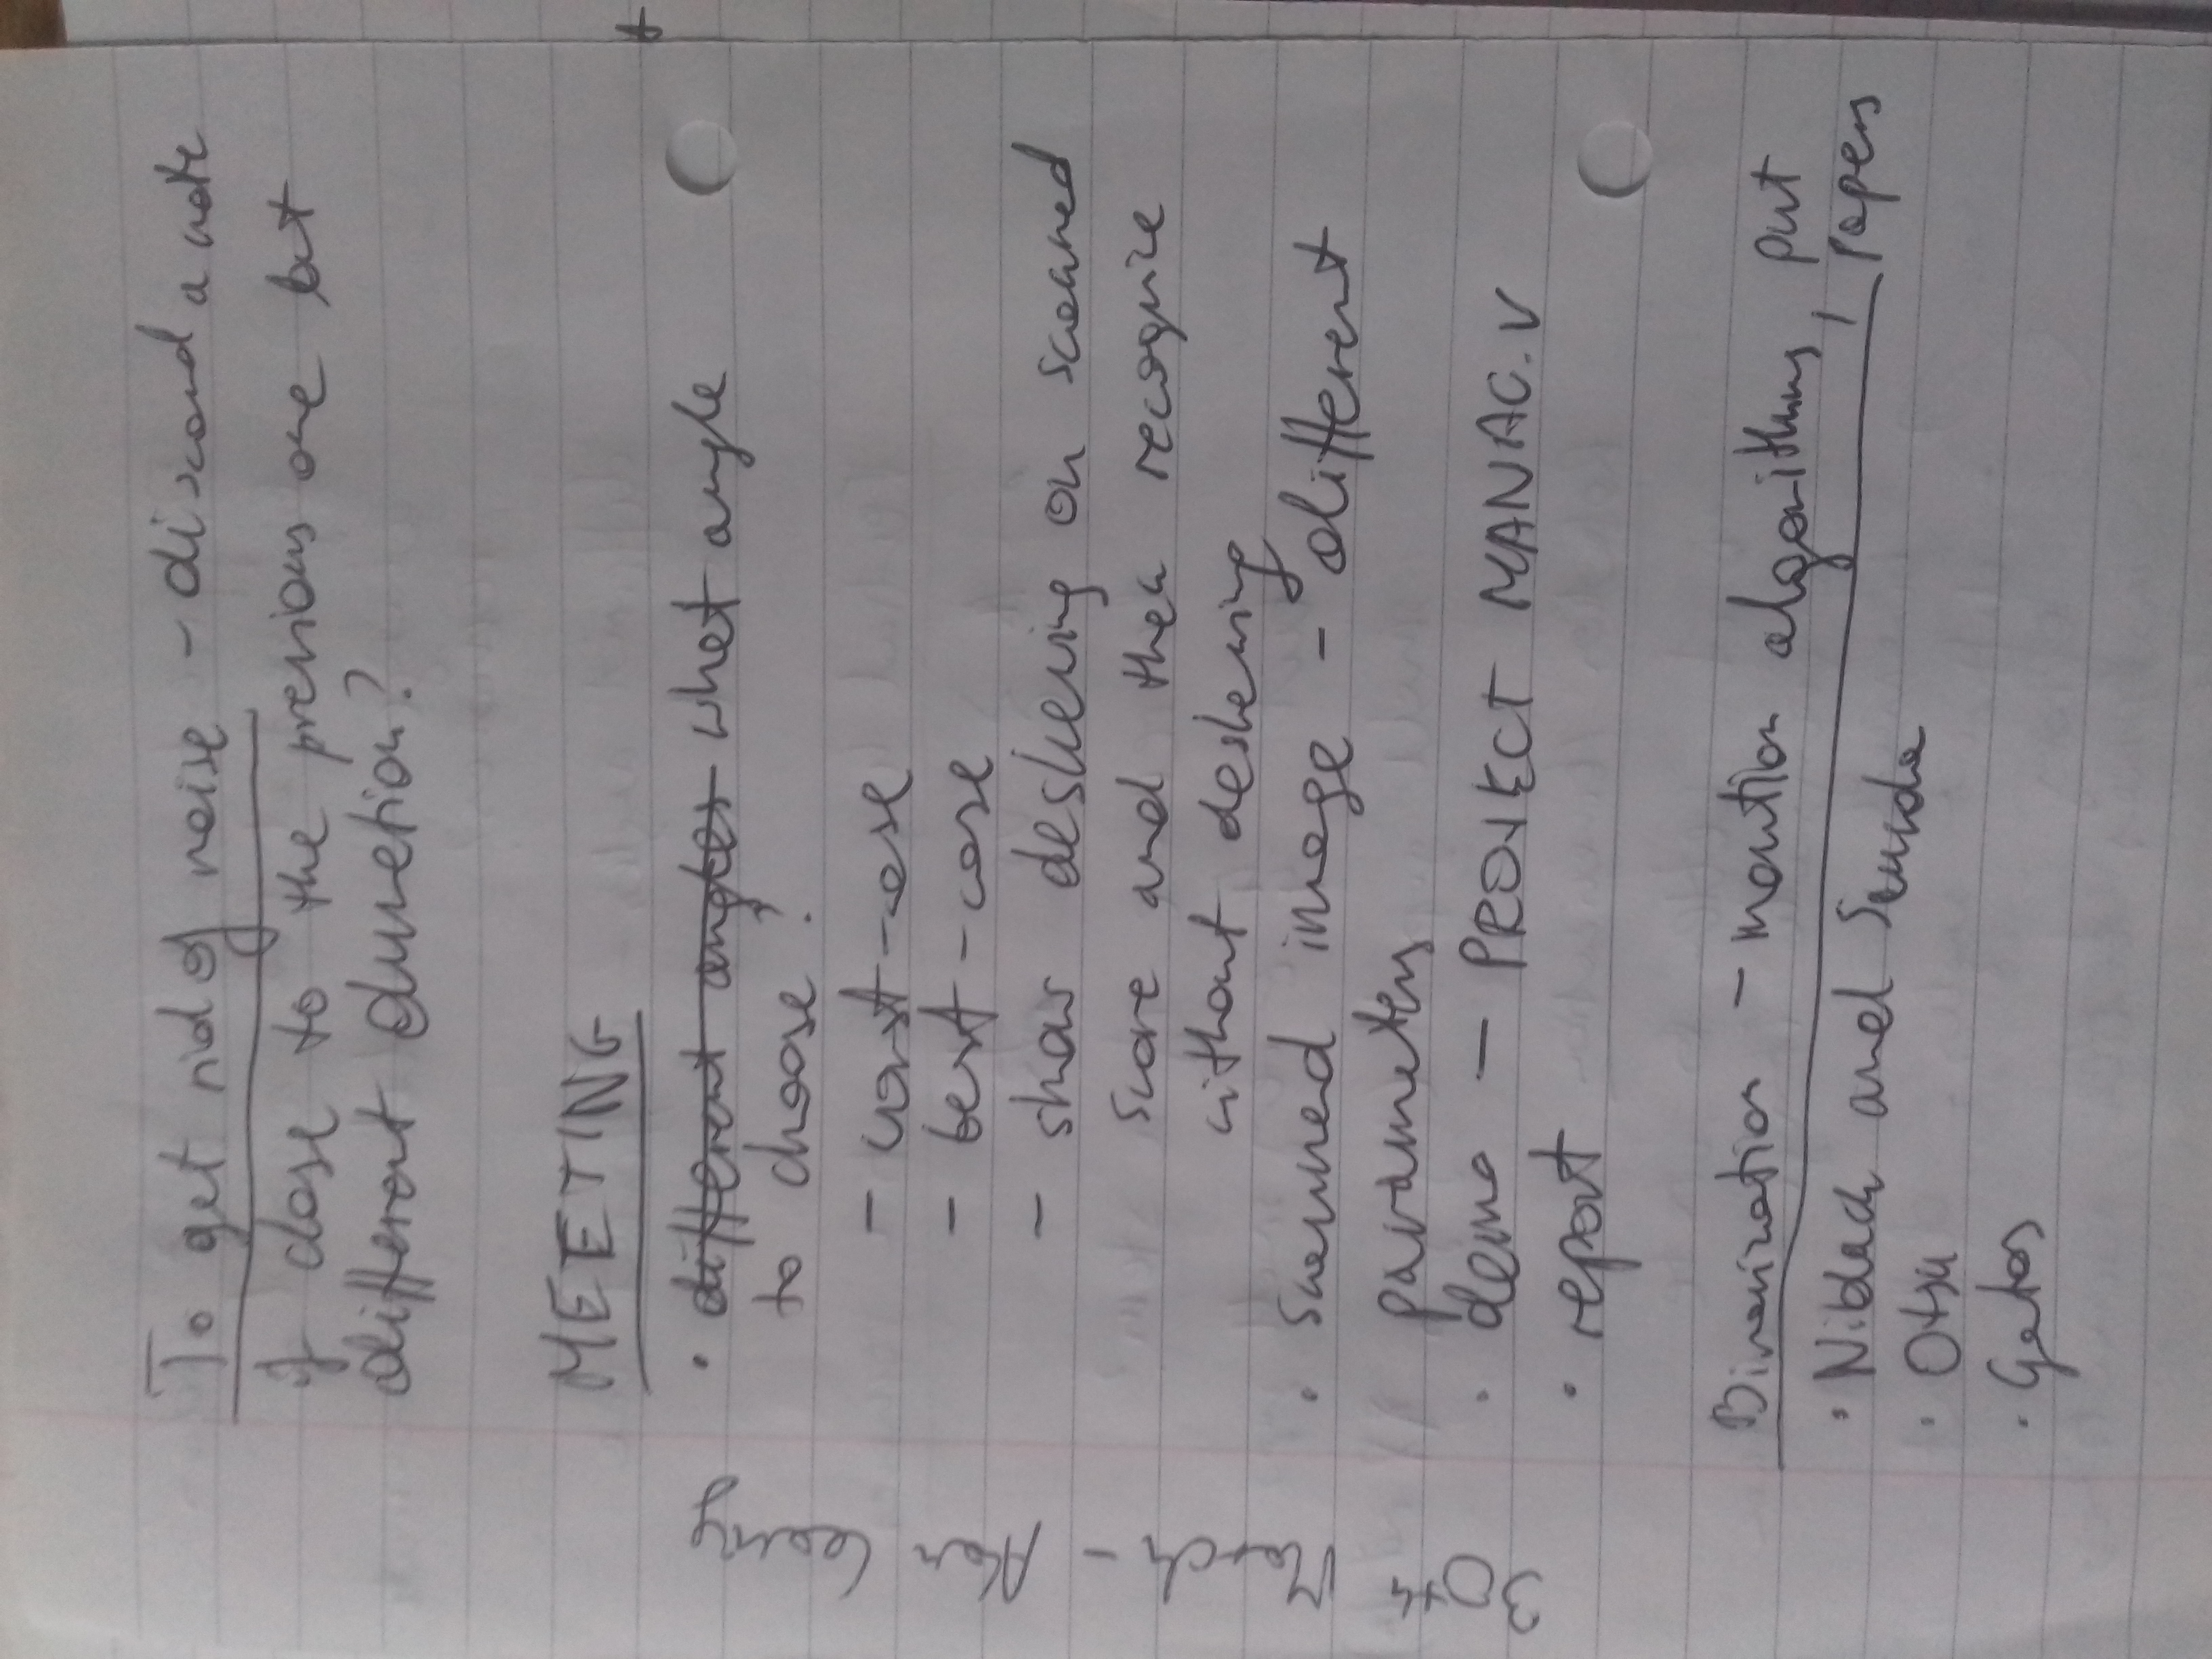 To get rid of noise - discard a note
if close to the previous one but
different duration?
MEETING
• different angles what angle
to choose?
- worst-case
- best-case
- show deskewing on scanned
score and then recognize
without deskewing
• scanned image - different
parameters
• demo - PROJECT MANAG. V
• report
Binarization - mention algorithms, put
papers
• Niblack and
• Otsu
• Gatos
30th March - Alan